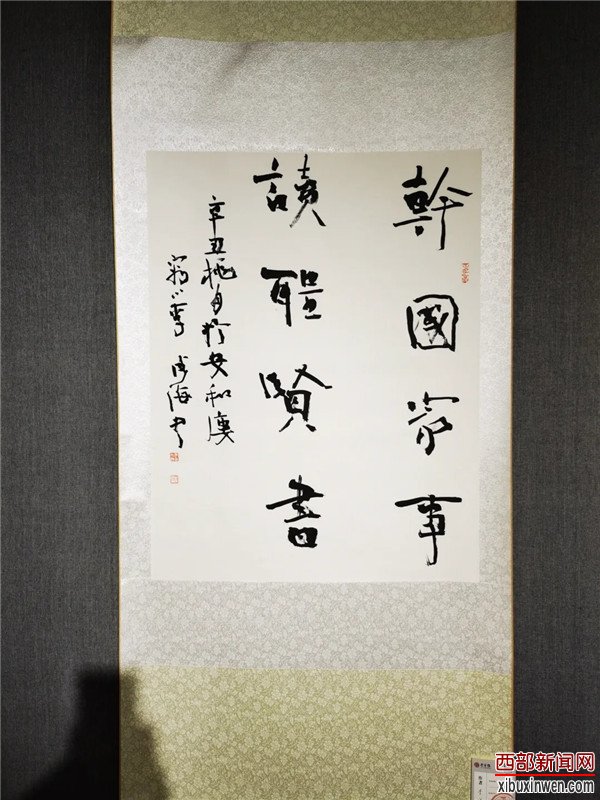 幹國家事
讀聖賢書
辛丑桃月於安和廔
西部新闻网
xibuxinwen.com